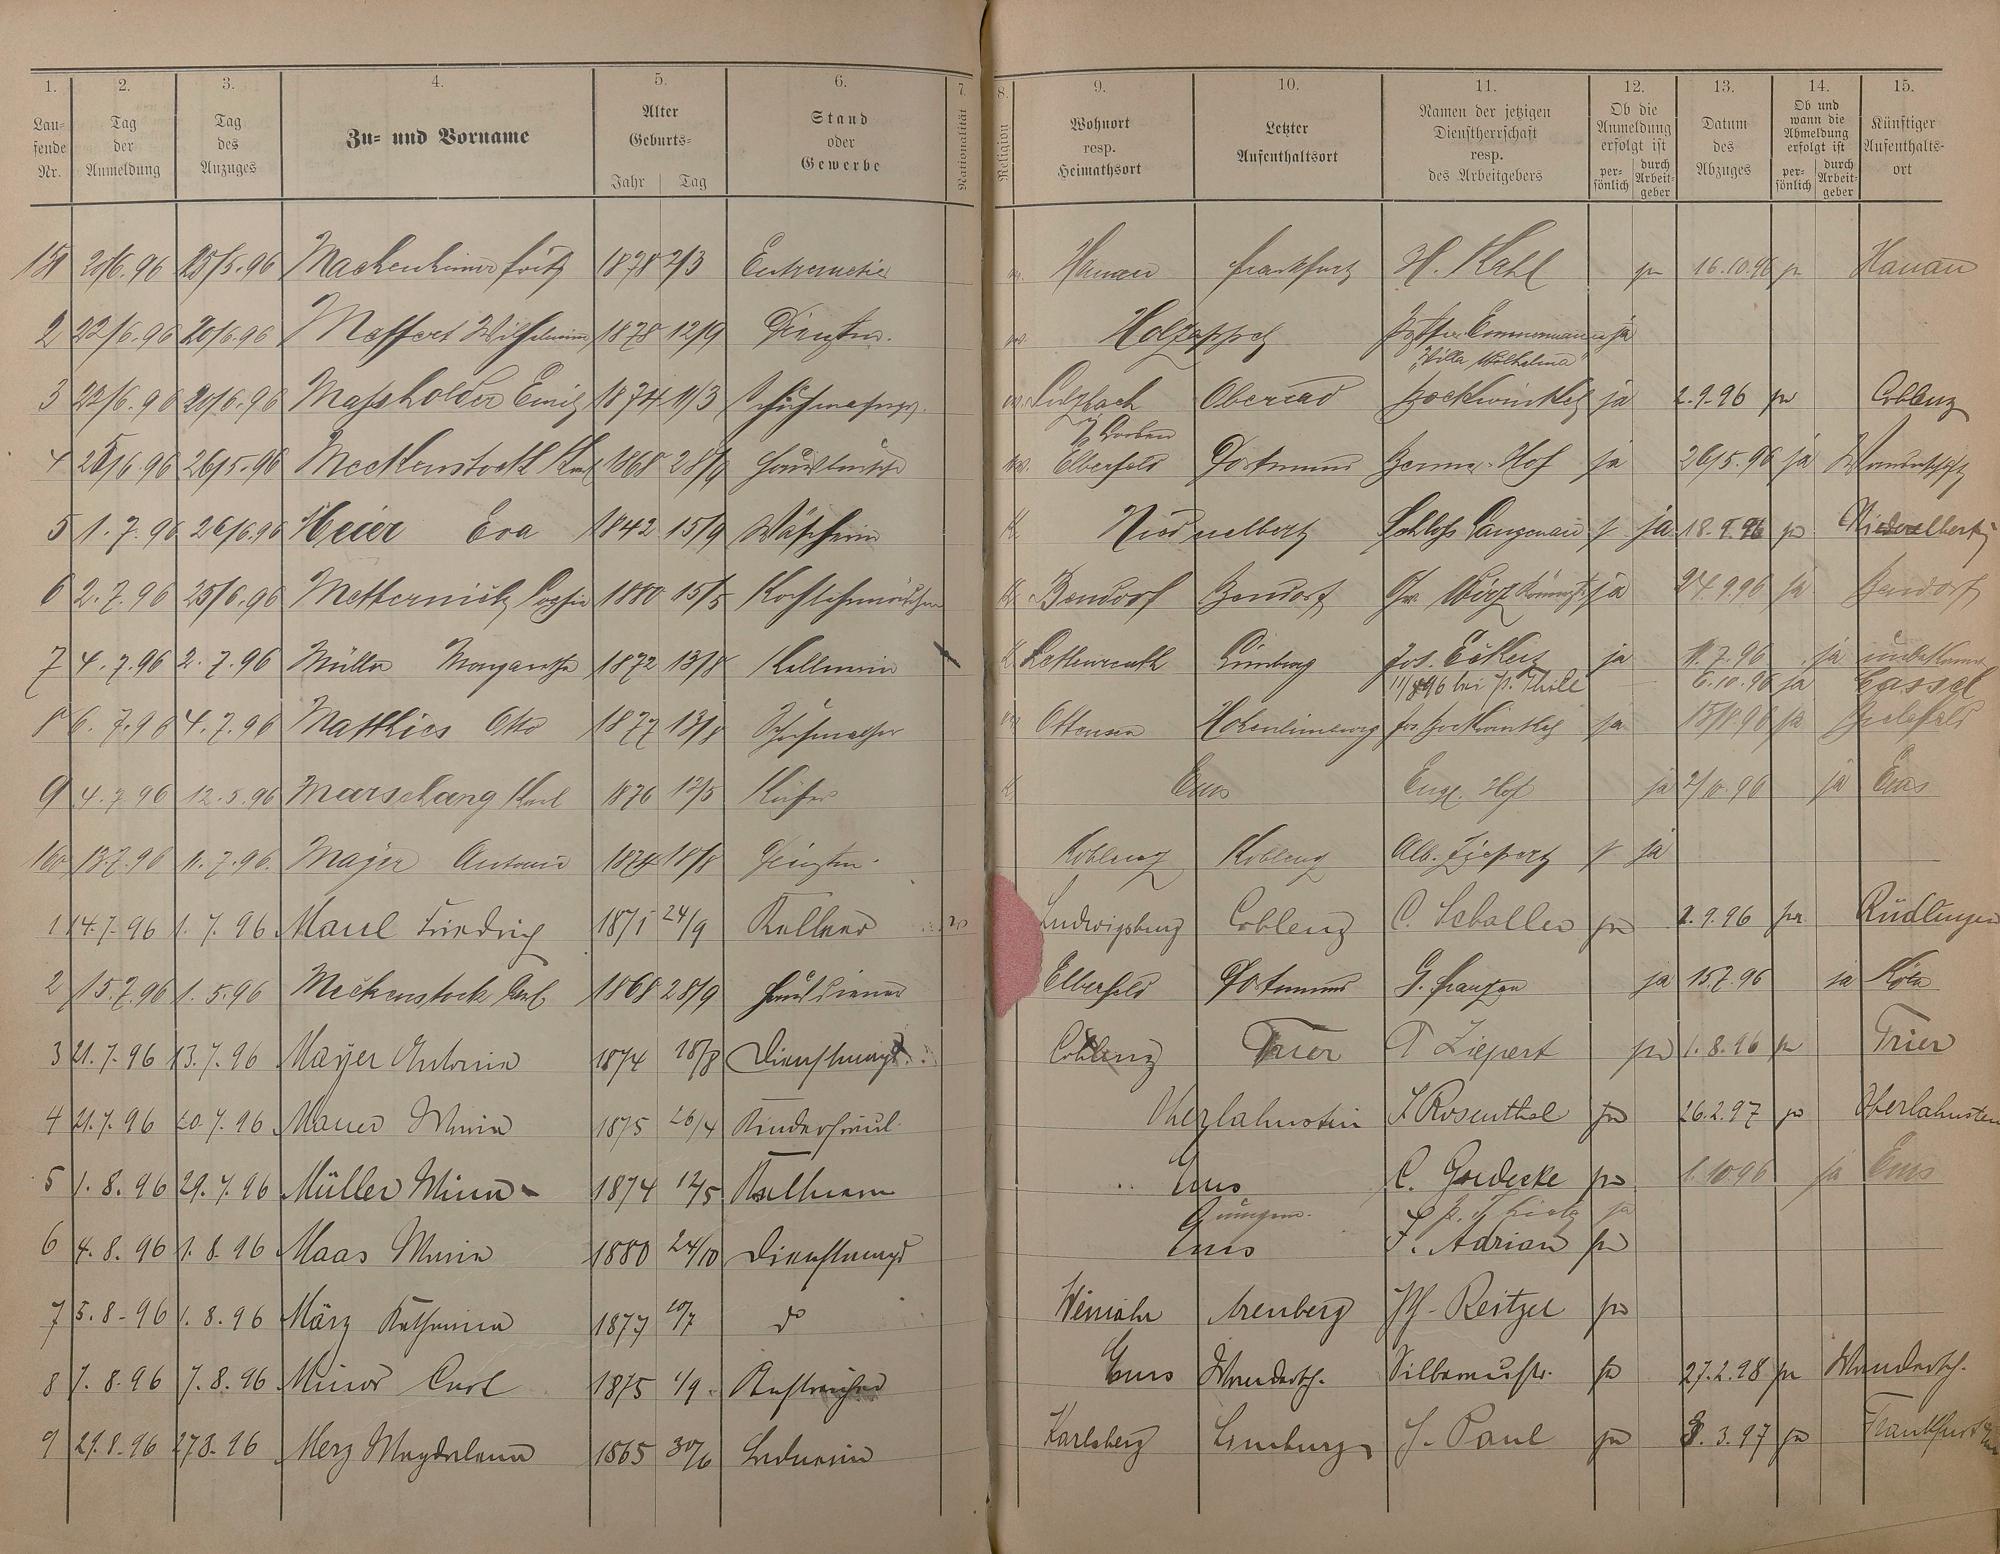 1. 2. 3. 4. 5. 6. 7. 8. 9. 10. 11. 12. 13. 14. 15.
Lau-
fende
Nr.
Tag
der
Anmeldung
Tag
des
Anzuges
Zu- und Vorname
Alter
Geburts-
Jahr Tag
Stand
oder
Gewerbe
Nationalität
Religion
Wohnort
resp.
Heimathsort
Letzter
Aufenthaltsort
Namen der jetzigen
Dienstherrschaft
resp.
des Arbeitgebers
Ob die
Anmeldung
erfolgt ist
per-
sönlich
durch
Arbeit-
geber
Datum
des
Abzuges
Ob und
wann die
Abmeldung
erfolgt ist
per-
sönlich
durch
Arbeit-
geber
Künftiger
Aufenthalts-
ort
25/5.96 1878 2/3 Hanau Frankfurt H. Kahl ja 16.10.96 ja Hanau
2 22/6.96 20/6.96 1878 12/9 Holzappel ja
Villa Wilhelma
3 22/6.96 20/6.96 Massholder Emil 1874 11/3 Sulzbach Oberrad Hockwinkel ja 2.9.96 ja Coblenz
4 26/5.96 Meckenstock Karl 1868 28/9 Elberfeld Dortmund Hof ja 26/5.96 ja Wanderschaft
5 1.7.96 26/6.96 Meier Eva 1842 15/9 Wäscherin K Niederelbert Schloss Langenau ja 18.9.96 ja Niederelbert
6 2.7.96 25/6.96 Metternich Sophie 1880 15/5 K Bendorf Bendorf ja 24.9.96 ja Bendorf
7 4.7.96 2.7.96 Müller Margaretha 1872 13/8 Kellnerin K Limburg Jos. Eckert ja 11.7.96 ja unbekannt
bei P. Thiele 6.10.96 ja Cassel
8 6.7.96 4.7.96 Matthies Otto 1877 13/8 Schuhmacher Ottensen Hohenlimburg Jos. Hockwinkel ja 15/8.96 ja Bielefeld
9 4.7.96 12.5.96 Marschang Karl 1876 12/5 Küfer K Ems Engl. Hof ja 2/10.96 ja Ems
160 13.7.96 11.7.96 Majer Antonie 1874 18/8 Koblenz Koblenz Alb. Ziepert ja
1 14.7.96 1.7.96 Friedrich 1871 24/9 Kellner Ludwigsburg Coblenz C. Schaller ja 2.9.96 ja
2 15.7.96 1.5.96 Meckenstock Carl 1868 28/9 Hausdiener Elberfeld Dortmund ja 15.7.96 ja Köln
3 21.7.96 13.7.96 Mayer Antonie 1874 18/8 Dienstmagd Coblenz Trier Ziepert ja 1.8.96 ja Trier
4 21.7.96 20.7.96 1875 26/4 Kinderfräul. Oberlahnstein Rosenthal ja 26.2.97 ja Oberlahnstein
5 1.8.96 29.7.96 Müller Minna 1874 12/5 Kellnerin Ems C. Goedecke ja 1.10.96 ja Ems
ja
6 4.8.96 1.8.96 Maas Maria 1880 24/10 Dienstmagd Ems F. Adrian ja
7 5.8.96 1.8.96 März Katharina 1877 10/7 do Weinähr Arenberg Reitzel ja
8 7.8.96 7.8.96 Minor Carl 1875 1/9 Anstreicher Ems Wandersch. Silbermustr. ja 27.2.98 ja Wandersch.
9 29.8.96 27.8.96 Merz Magdalena 1865 30/6 Karlsberg Limburg J. Paul ja 8.3.97 ja Frankfurt